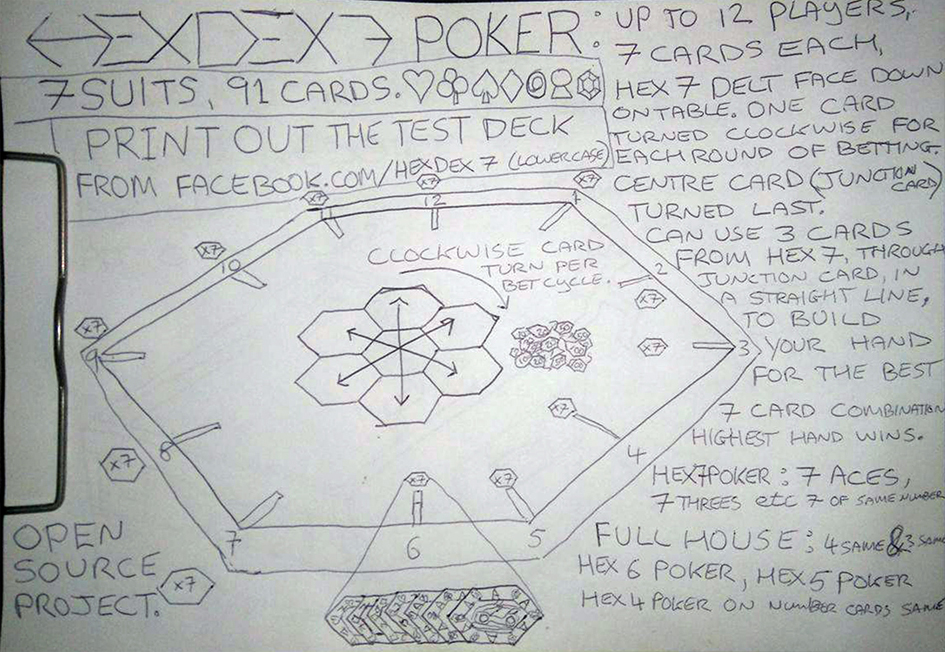 HEXDEX7 POKER:
7 SUITS, 91 CARDS.
PRINT OUT THE TEST DECK
FROM FACEBOOK.COM/HEXDEX7 (LOWERCASE)
UP TO 12 PLAYERS,
7 CARDS EACH,
HEX 7 DELT FACE DOWN
ON TABLE. ONE CARD
TURNED CLOCKWISE FOR
EACH ROUND OF BETTING.
CENTRE CARD (JUNCTION CARD)
TURNED LAST.
CAN USE 3 CARDS
FROM HEX 7, THROUGH
JUNCTION CARD, IN
A STRAIGHT LINE,
TO BUILD
YOUR HAND
FOR THE BEST
7 CARD COMBINATION
HIGHEST HAND WINS.
HEX7POKER: 7 ACES,
7 THREES etc 7 OF SAME NUMBER
FULL HOUSE: 4 SAME & 3 SAME
HEX 6 POKER, HEX 5 POKER
HEX 4 POKER ON NUMBER CARDS SAME
CLOCKWISE CARD
TURN PER
BET CYCLE.
x7
x7
x7
x7
x7
x7
x7
x7
x7
x7
x7
x7
x7
11
12
1
10
2
9
3
8
4
7
6
5
OPEN
SOURCE
PROJECT.